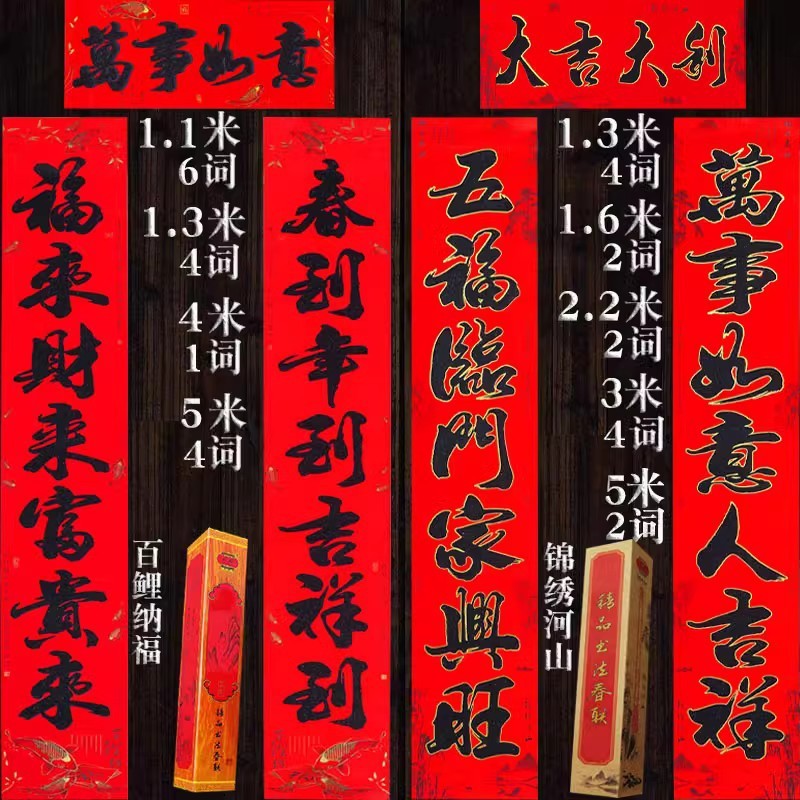 萬事如意
福來財来富貴來
1.1米
6词
1.3米
4词
4米
1词
5米
4词
百鲤纳福
精品书法春联
春到年到吉祥到
大吉大利
五福臨門家興旺
1.3米
4词
1.6米
2词
2.2米
2词
3米
4词
5米
2词
锦绣河山
精品书法春联
萬事如意人吉祥